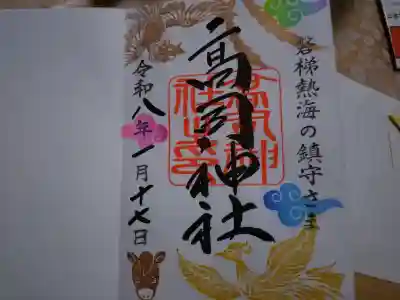 磐梯熱海の鎮守さま
高司神社
令和八年一月十七日